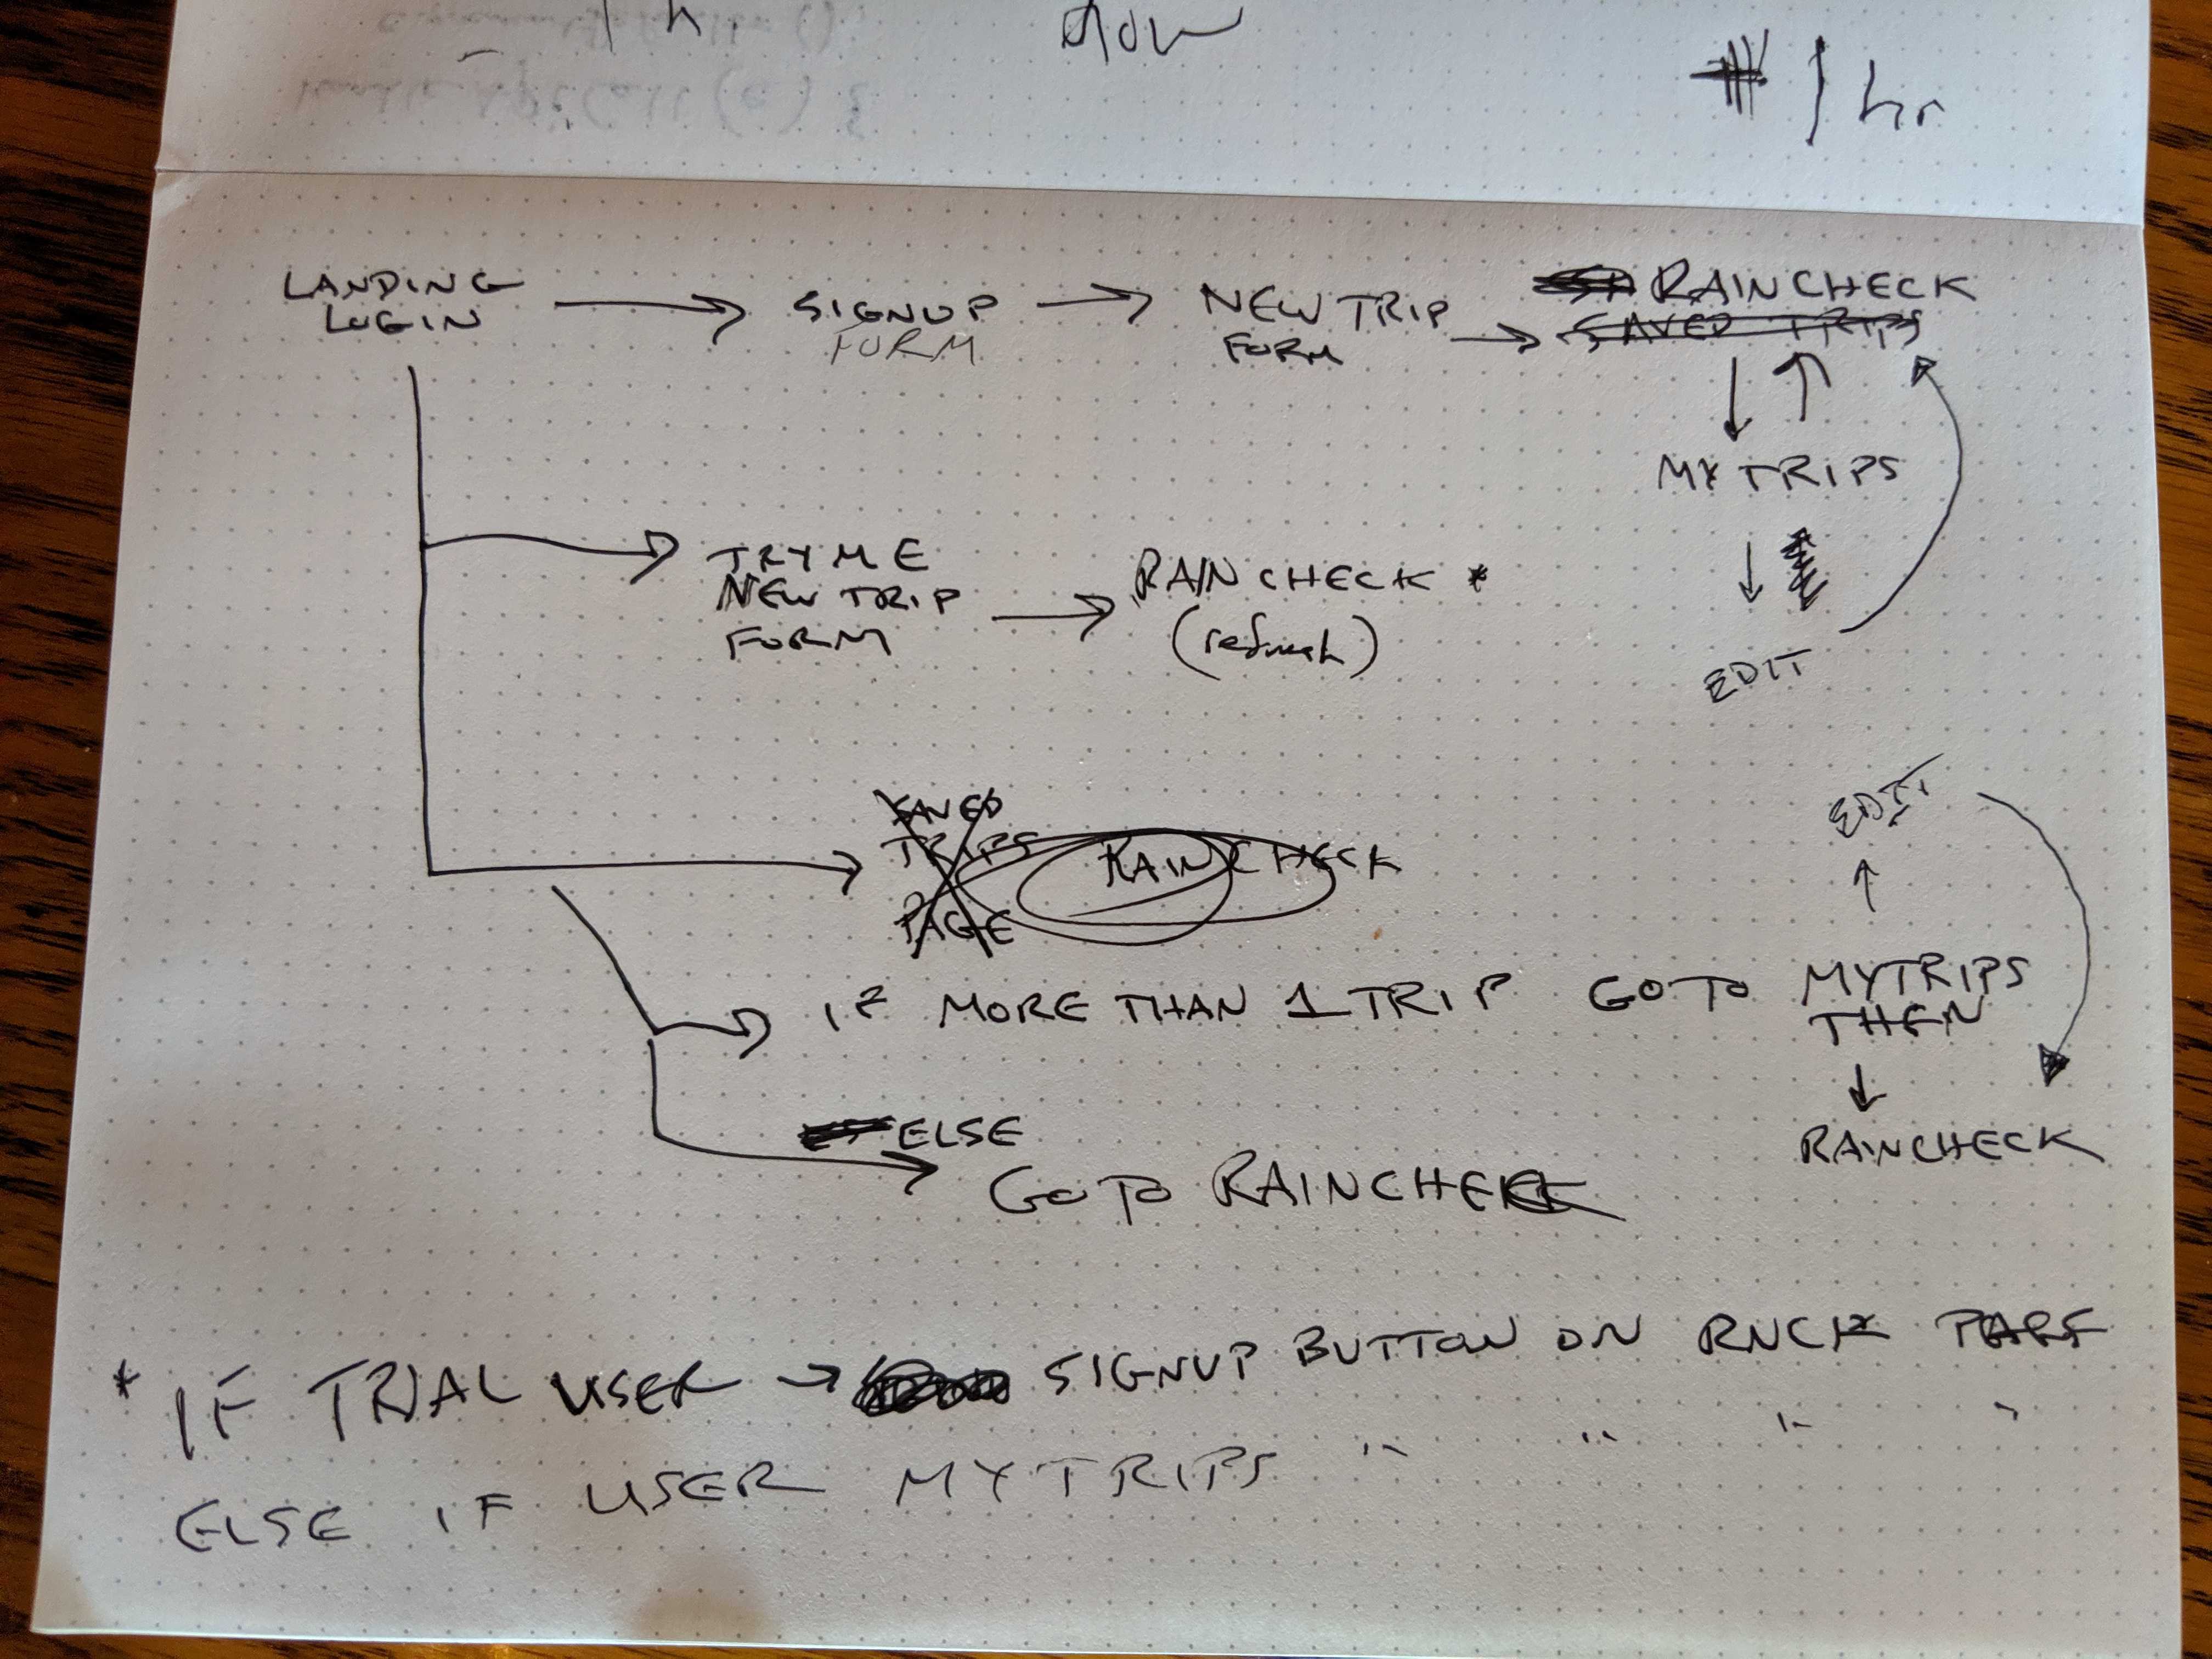 now
1 hr
LANDING
LOGIN
SIGNUP
FORM
NEW TRIP
FORM
RAINCHECK
SAVED TRIPS
MY TRIPS
EDIT
TRY ME
NEW TRIP
FORM
RAINCHECK *
(refresh)
SAVED
TRIPS
PAGE
RAINCHECK
EDIT
IF MORE THAN 1 TRIP GO TO MYTRIPS
THEN
RAINCHECK
ELSE
GO TO RAINCHECK
* IF TRIAL USER → SIGNUP BUTTON ON RNCK PAGE
ELSE IF USER MYTRIPS " " " "